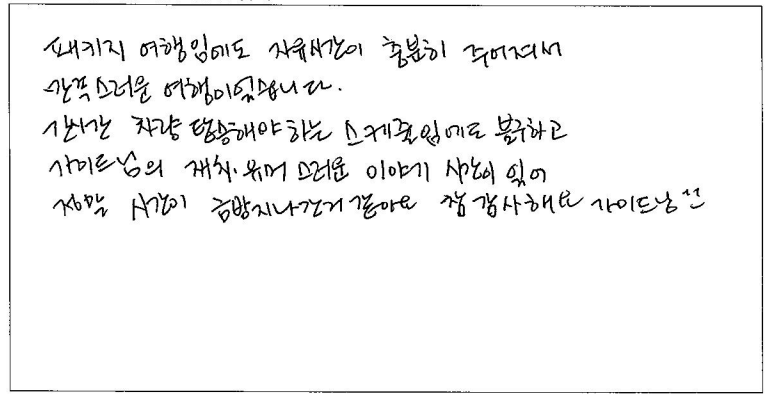 패키지 여행임에도 자유시간이 충분히 주어져서
만족스러운 여행이었습니다.
장시간 차량 탑승해야 하는 스케줄임에도 불구하고
가이드님의 재치·유머 스러운 이야기 시간이 있어
정말 시간이 금방지나간거 같아요 참 감사해요 가이드님^^